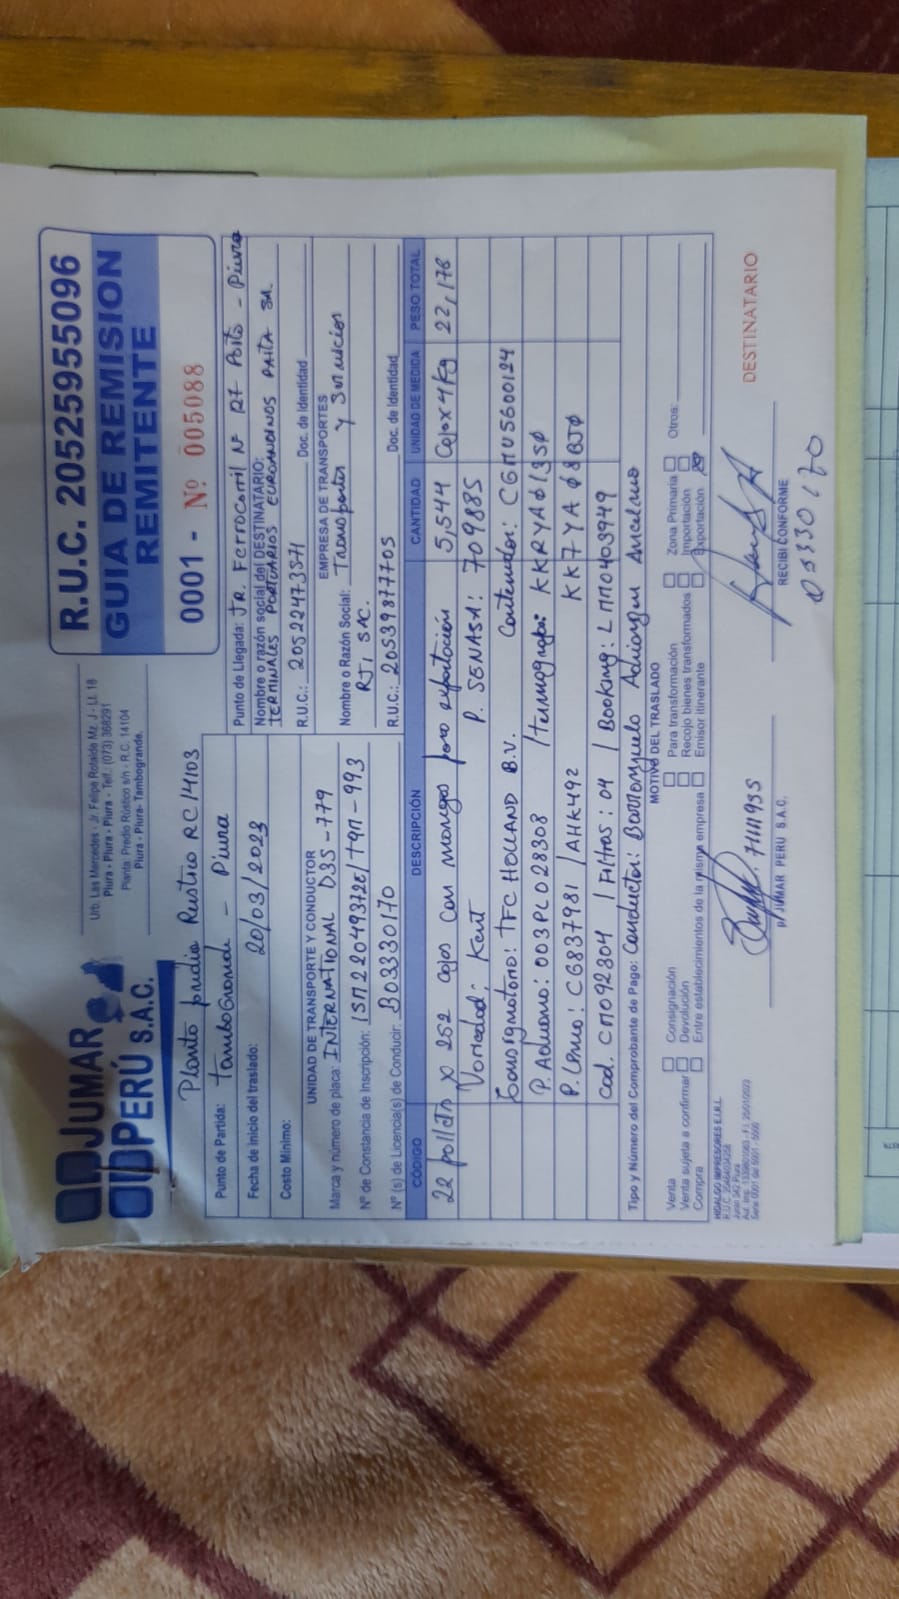 JUMAR
PERÚ S.A.C.
Urb. Las Mercedes - Jr. Felipe Rotalde Mz. J - Lt. 18
Piura - Piura - Piura - Telf.: (073) 368291
Planta: Predio Rústico s/n - R.C. 14104
Piura - Piura- Tambogrande.
R.U.C. 20525955096
GUIA DE REMISION
REMITENTE
0001 - Nº 005088
Planta predio Rustico RC14103
Punto de Partida: TamboGrande - Piura
Fecha de inicio del traslado: 20/03/2023
Costo Mínimo:
Punto de Llegada: JR. Ferrocarril Nº 127 Paita - Piura
Nombre o razón social del DESTINATARIO:
TERMINALES PORTUARIOS EUROANDINOS PAITA SA.
R.U.C.: 20522473571 Doc. de Identidad
UNIDAD DE TRANSPORTE Y CONDUCTOR
Marca y número de placa: INTERNATIONAL D3S-779
Nº de Constancia de Inscripción: 15M22049372E/T9T-993
Nº (s) de Licencia(s) de Conducir: B03330170
EMPRESA DE TRANSPORTES
Nombre o Razón Social: Transportes y Servicios
RTI SAC.
R.U.C.: 20539877705 Doc. de Identidad
CÓDIGO DESCRIPCIÓN CANTIDAD UNIDAD DE MEDIDA PESO TOTAL
22 pallets x 252 cajas con mangos para exportación 5,544 Cajax4Kg 22,176
Variedad: Kent P. SENASA: 709885
Consignatario: TFC HOLLAND B.V. Contenedor: CGMU5600124
P. Aduana: 003PL028308 /Termografo: KKRYA013S0
P. Línea: C6837981 / AHK492 KK7YA0860
Cod. CM092304 / Filtros: 04 / Booking: LMM0403949
Tipo y Número del Comprobante de Pago: Conductor: Barranzuelo Adrianzen Ancelmo
MOTIVO DEL TRASLADO
Venta Consignación Para transformación Zona Primaria Otros:
Venta sujeta a confirmar Devolución Recojo bienes transformados Importación
Compra Entre establecimientos de la misma empresa Emisor itinerante Exportación
HIDALGO IMPRESORES E.I.R.L.
Serie 0001 del 5001 - 5500
P. JUMAR PERU S.A.C.
RECIBI CONFORME
03330170
DESTINATARIO